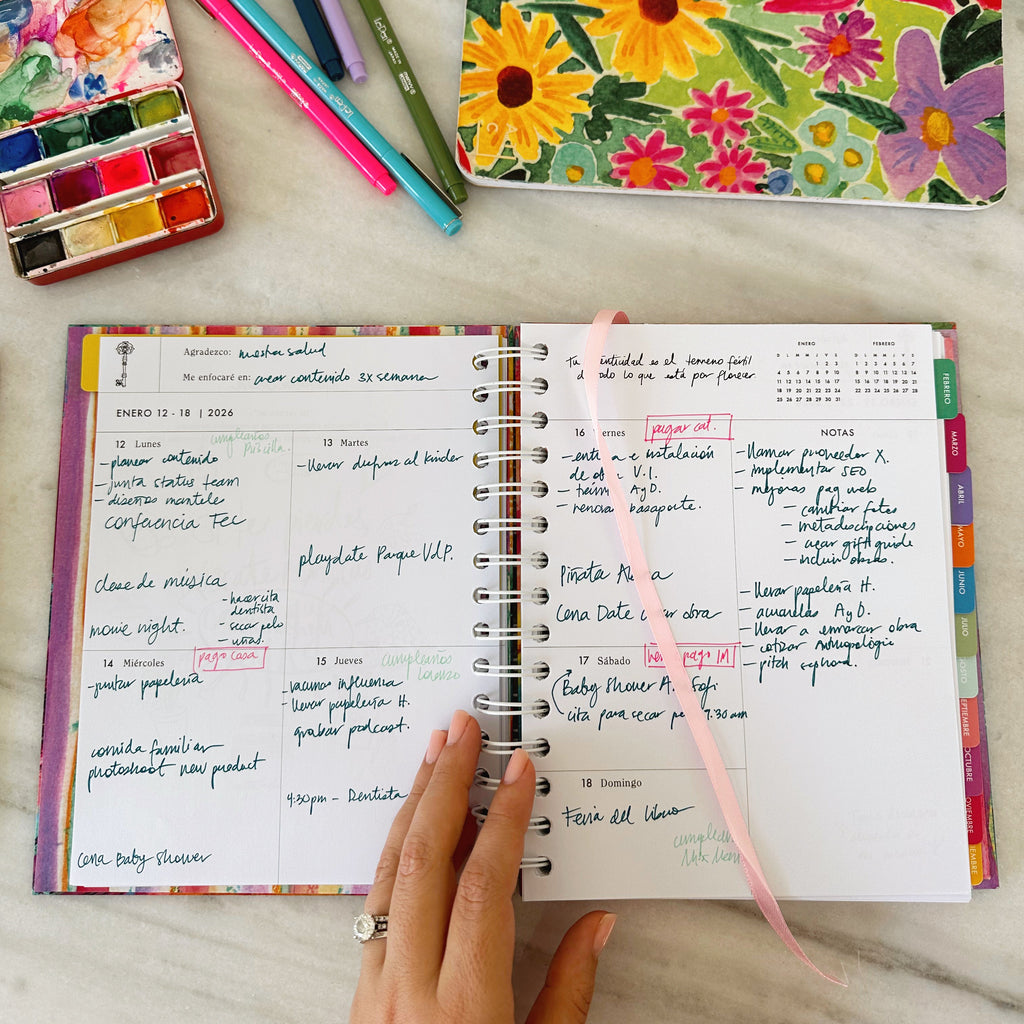 Agradezco: nuestra salud
Me enfocaré en: crear contenido 3x semana
ENERO 12 - 18 | 2026
12 Lunes
cumpleaños
Priscilla.
- planear contenido
- junta status team
- diseños manteles
conferencia Tec
clase de música
- hacer cita
dentista
- secar pelo
- uñas.
movie night.
13 Martes
- llevar al kinder
playdate Parque V.d.P.
14 Miércoles
pago casa
- pintar papelería
comida familiar
photoshoot new product
Cena Baby Shower
15 Jueves
cumpleaños
Lorenzo
- vacunas influenza
- llevar papelería H.
grabar podcast.
4:30pm - Dentista
Tu es el terreno fértil
lo que está por florecer
ENERO
D L M M J V S
1 2 3
4 5 6 7 8 9 10
11 12 13 14 15 16 17
18 19 20 21 22 23 24
25 26 27 28 29 30 31
FEBRERO
D L M M J V S
1 2 3 4 5 6 7
8 9 10 11 12 13 14
15 16 17 18 19 20 21
22 23 24 25 26 27 28
16 ernes
pagar cat.
e instalación
de V.I.
- AyD.
- pasaporte.
Piñata
Cena Date obra
17 Sábado
pago IM
Baby Shower A. Sofi
cita para secar 9:30 am
18 Domingo
Feria del libro
NOTAS
- llamar proveedor X.
- implementar SEO
- mejoras pag web
- cambiar fotos
- metadescripciones
- crear gift guide
- incluir obras.
- llevar papelería H.
- acuarelas AyD.
- llevar a enmarcar obra
- cotizar Anthropologie
- pitch sephora.
FEBRERO
MARZO
ABRIL
MAYO
JUNIO
JULIO
AGOSTO
EPTIEMBRE
OCTUBRE
OVIEMBRE
IEMBRE